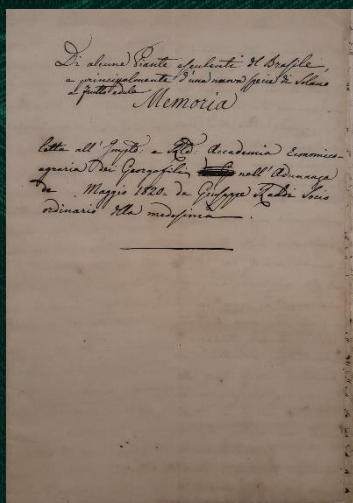 Di alcune Piante esculenti del Brasile,
e principalmente d'una nuova specie di Solano
a frutto edule
Memoria
letta all' e Accademia Economico
agraria dei Georgofili, nell'Adunanza
de Maggio 1820. da Giuseppe Raddi Socio
ordinario della medesima.